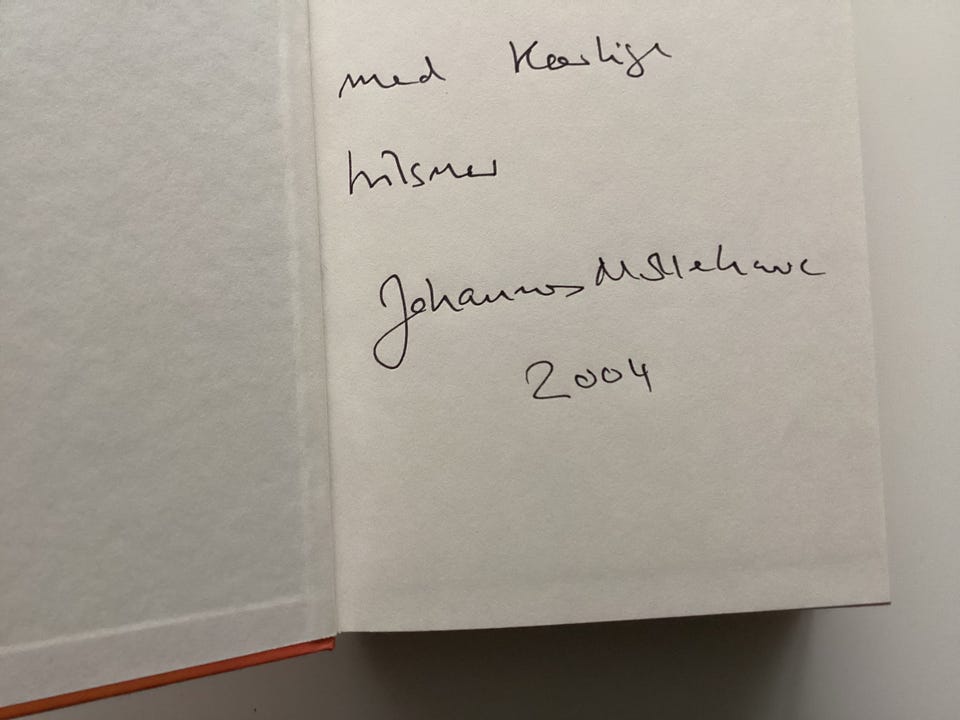 med Kærlige
hilsner
Johannes Møllehave
2004